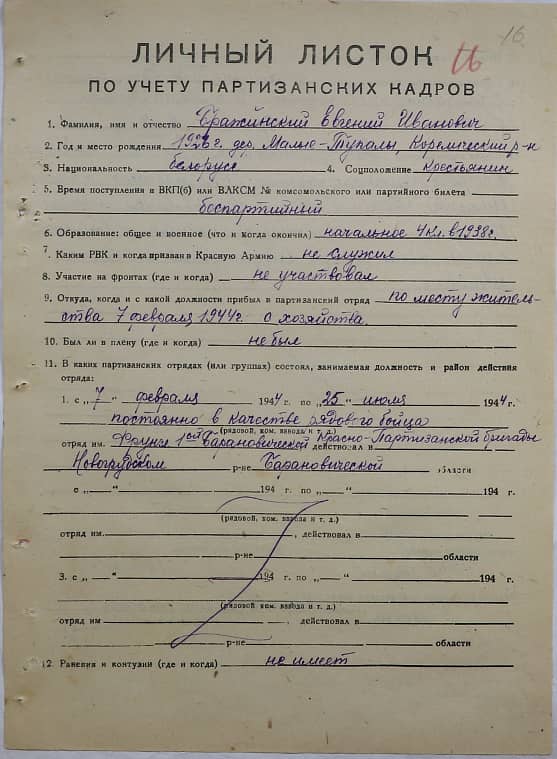 16
16
ЛИЧНЫЙ ЛИСТОК
ПО УЧЕТУ ПАРТИЗАНСКИХ КАДРОВ
1. Фамилия, имя и отчество Бражинский Евгений Иванович
2. Год и место рождения 1926 г. дер. Малые-Тупалы, Кореличский р-н
3. Национальность белорусс 4. Соцположение Крестьянин
5. Время поступления в ВКП(б) или ВЛКСМ № комсомольского или партийного билета
беспартийный
6. Образование: общее и военное (что и когда окончил) начальное 4 кл. в 1938 г.
7. Каким РВК и когда призван в Красную Армию не служил
8. Участие на фронтах (где и когда) не участвовал
9. Откуда, когда и с какой должности прибыл в партизанский отряд по месту житель-
ства 7 февраля 1944 г. с хозяйства.
10. Был ли в плену (где и когда) не был
11. В каких партизанских отрядах (или группах) состоял, занимаемая должность и район действия
отряда:
1. с „7" февраля 1944 г. по „25" июля 1944 г.
постоянно в качестве рядового бойца
(рядовой, ком. взвода и т. д.)
отряд им. Фрунзе 1ой Барановической действовал в Красно-Партизанской бригады
Новогрудском р-не Барановической области
с „ — " 194 г. по „ — " 194 г.
(рядовой, ком. взвода и т. д.)
отряд им. , действовал в
р-не области
3. с „ — " 194 г. по „ — " 194 г.
(рядовой, ком. взвода и т. д.)
отряд им , действовал в
р-не области
12. Ранения и контузии (где и когда) не имеет